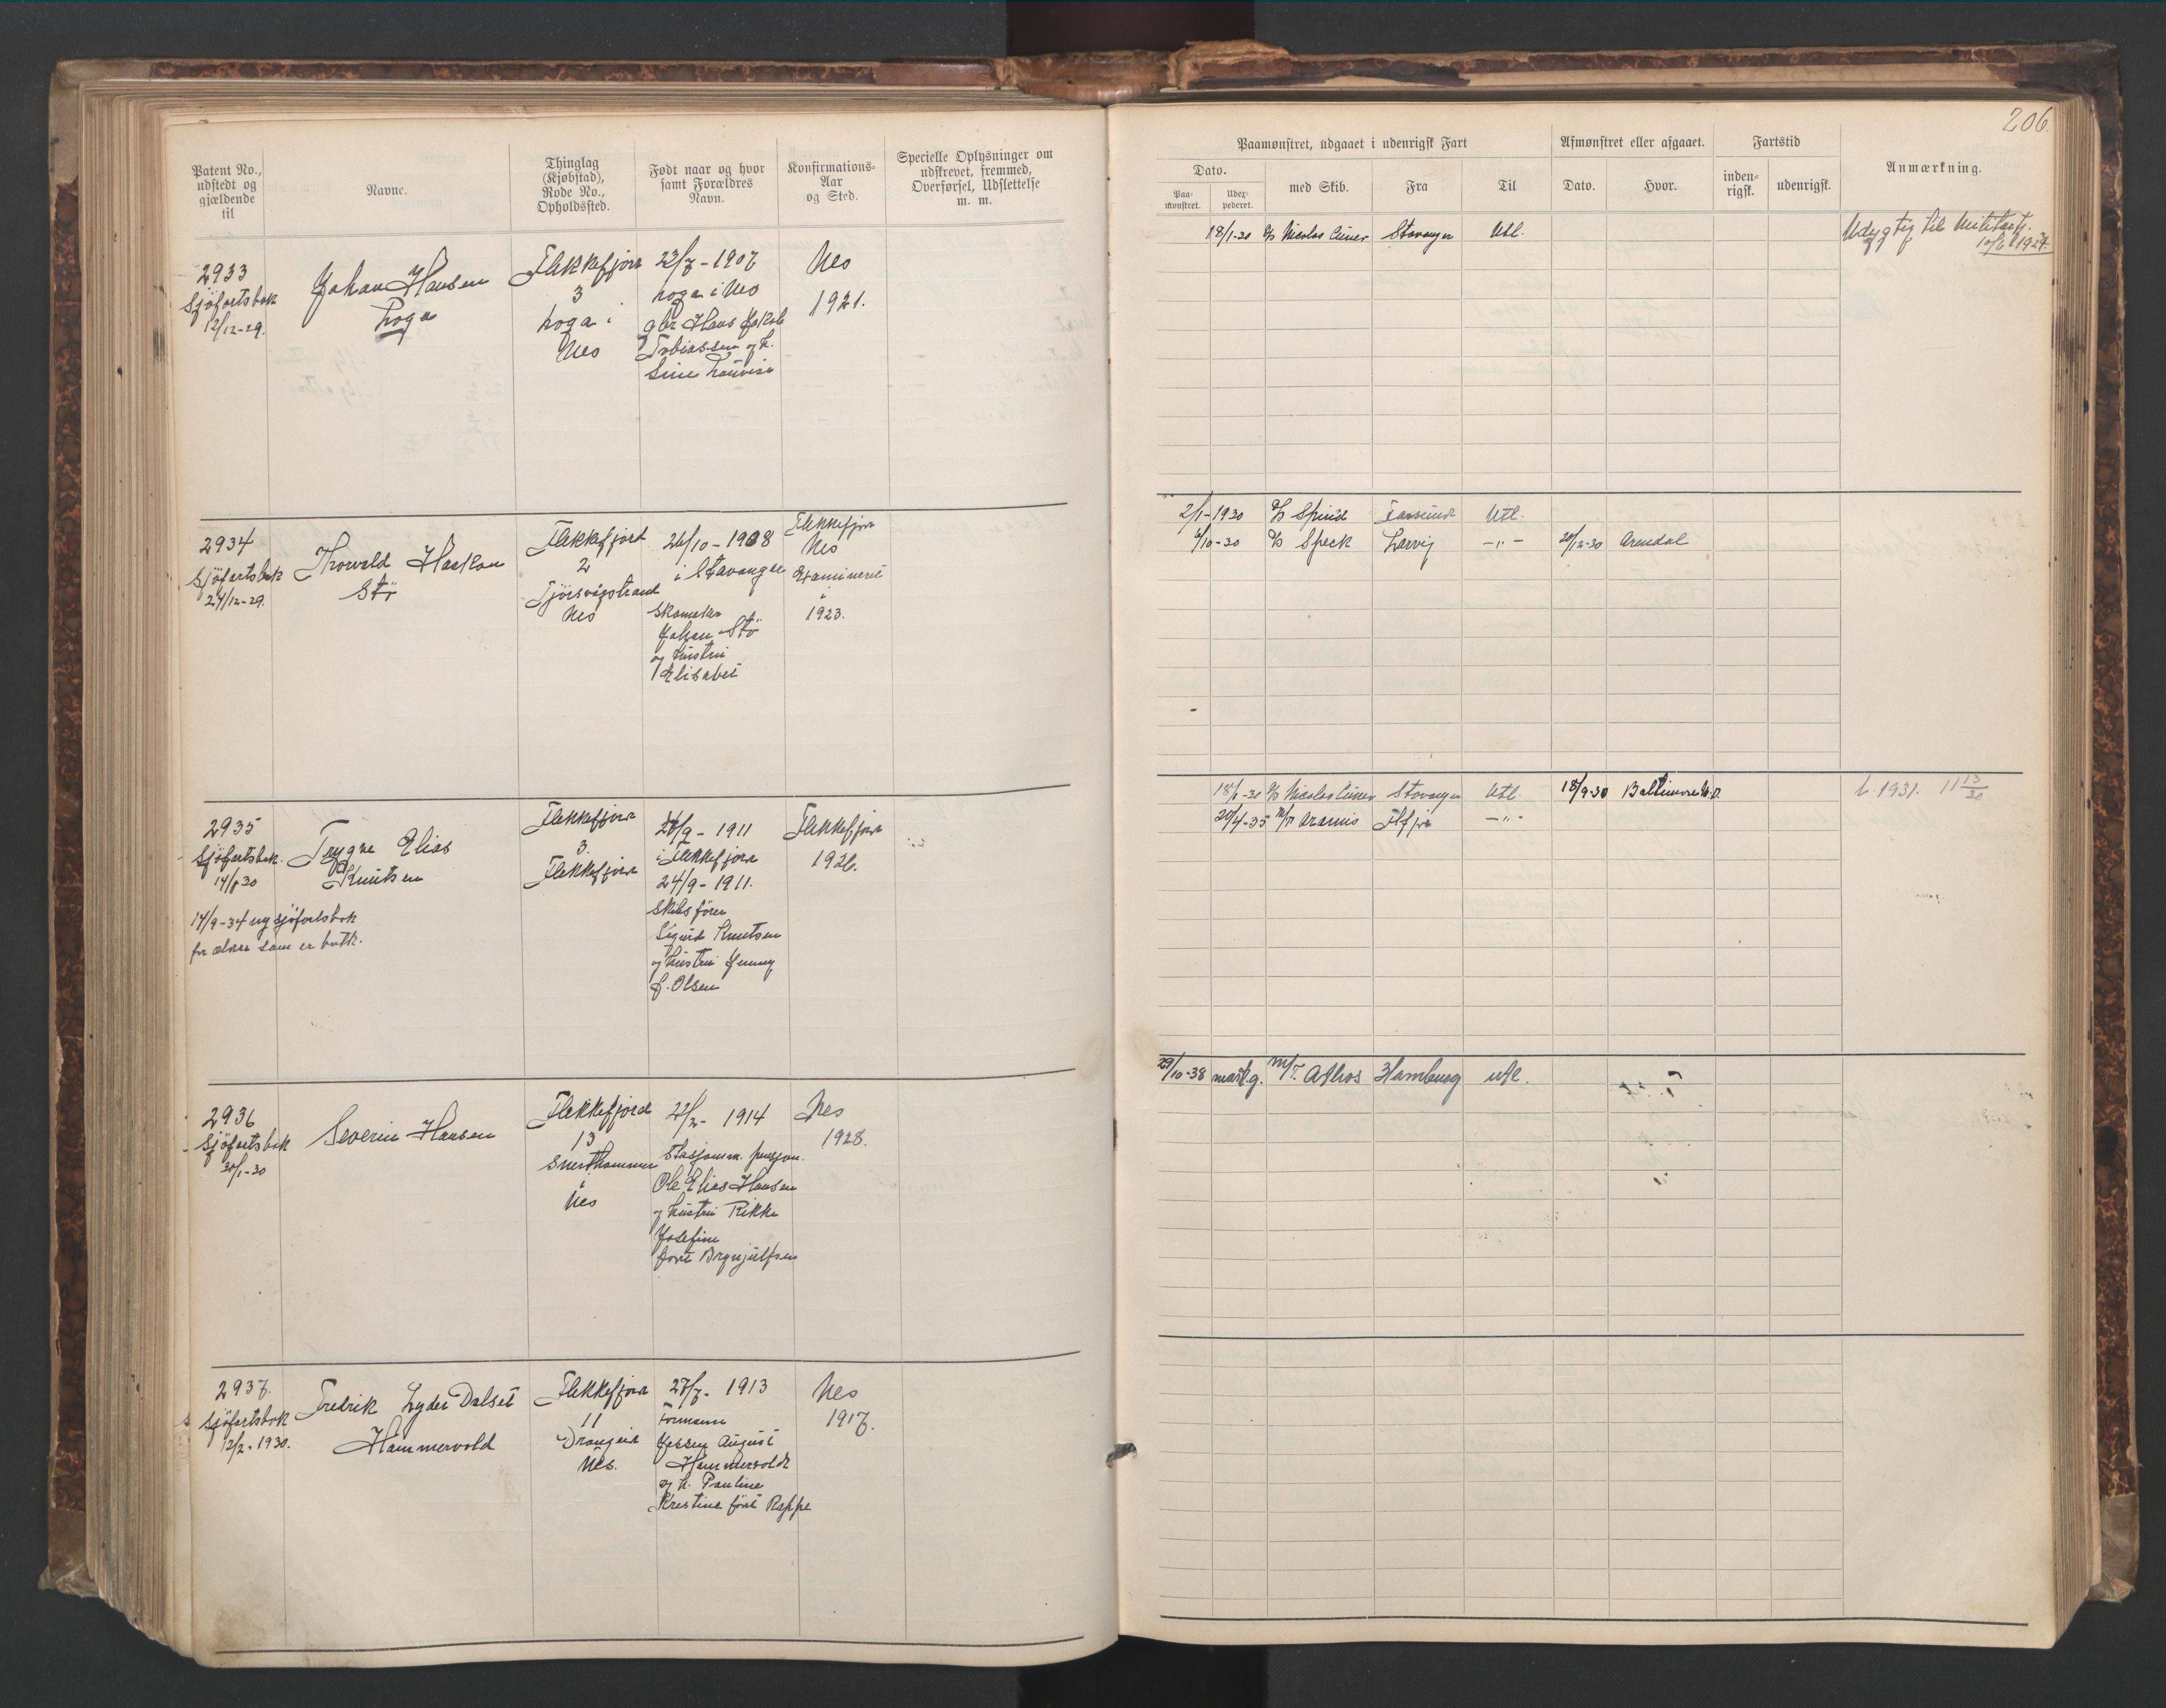 206.
Patent No., udstedt og gjældende til
Navne.
Thinglag (Kjøbstad), Rode No., Opholdssted.
Født naar og hvor samt Forældres Navn.
Konfirmations-Aar og Sted.
Specielle Oplysninger om udskrevet, fremmed, Overførsel, Udslettelse m. m.
Paamønstret, udgaaet i udenrigsk Fart
Dato.
Paa-mønstret.
Udex-pederet.
med Skib.
Fra
Til
Afmønstret eller afgaaet.
Dato.
Hvor.
Fartstid
inden-rigsk.
udenrigsk.
Anmærkning.
2933
Sjøfartsbok
12/12-29.
Johan Hansen
Loga
Flekkefjord
3
Loga i
Nes
1907
Loga i Nes
gbr Hans Jakob
Tobiassen og h.
Sine Lovise
Nes
1921.
18/1-30
Stavanger
Utl.
Udygtig til Militærtj.
2934
Sjöfartsbok
27/12-29.
Thorvald Haakon
Stö
Flekkefjord
2
Tjörsvågstrand
Nes
26/10-1908
i Stavanger
Skomaker
Johan Stö
og hustru
Elisabet
Flekkefjord
Nes
Examineret
1923.
2/1-1930 Spind Farsund Utl.
/10-30 Speck Larvig -"- 20/12-30 Arendal
2935
Sjöfartsbok
14/1 30
Trygve Elias
Knutsen
14/9-34 ny sjöfartsbok
for ældre som er bortk.
Flekkefjord
3.
Flekkefjord
24/9-1911
i Flekkefjord
24/9-1911.
Skibsförer
Sigurd Knutsen
og hustru Jenny
f. Olsen
Flekkefjord
1926.
18/1-30 Stavanger Utl. 18/9-30 Baltimore M.D.
20/4-35 M/T Aramis -"-
L. 1931. 11 13/30
2936
Sjöfartsbok
30/1-30
Severin Hansen
Flekkefjord
13
Snerthammer
i
Nes
22/2-1914
Stasjonsm. pensjon.
Ole Elias Hansen
og hustru Rikke
Josefine
født Brynjulfsen
Nes
1928.
29/10-38 M/T. Athos Hamburg utl.
2937.
Sjöfartsbok
12/2-1930.
Fredrik Lyder Dalset
Hammervold
Flekkefjord
11
Drangeid
Nes.
27/7-1913
Formann
Jessen August
Hammervold
og h. Pauline
Kristine født Rappe
Nes
1917.